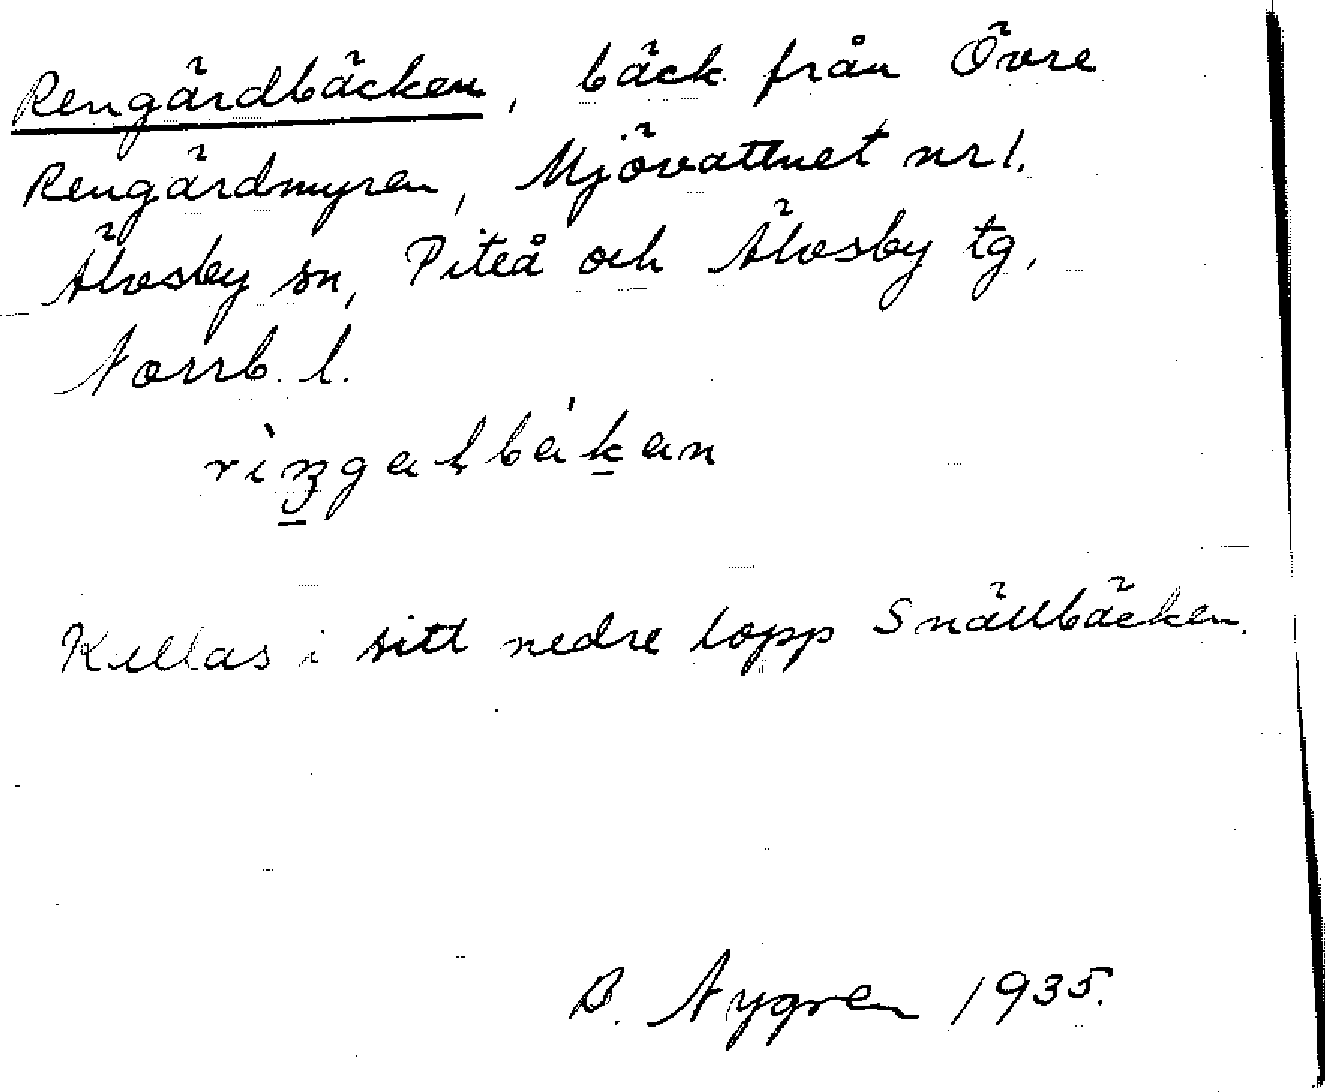 Rengärdbäcken, bäck från Övre
Rengärdmyren, Mjövattnet nr 1.
Älvsby sn, Piteå och Älvsby tg,
Norrb. l.
Kallas i sitt nedre lopp Snällbäcken.
B. Nygren 1935.